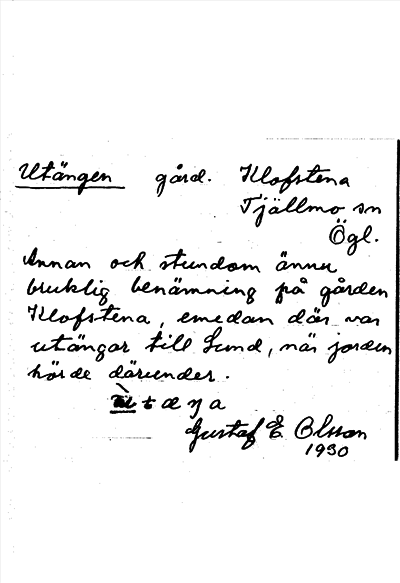 Utängen gård. Klofstena
Tjällmo sn
Ögl.
Annan och stundom ännu
bruklig benämning på gården
Klofstena, emedan där var
utängar till Lund, när jorden
hörde därunder.
Gustaf E. Olsson
1930